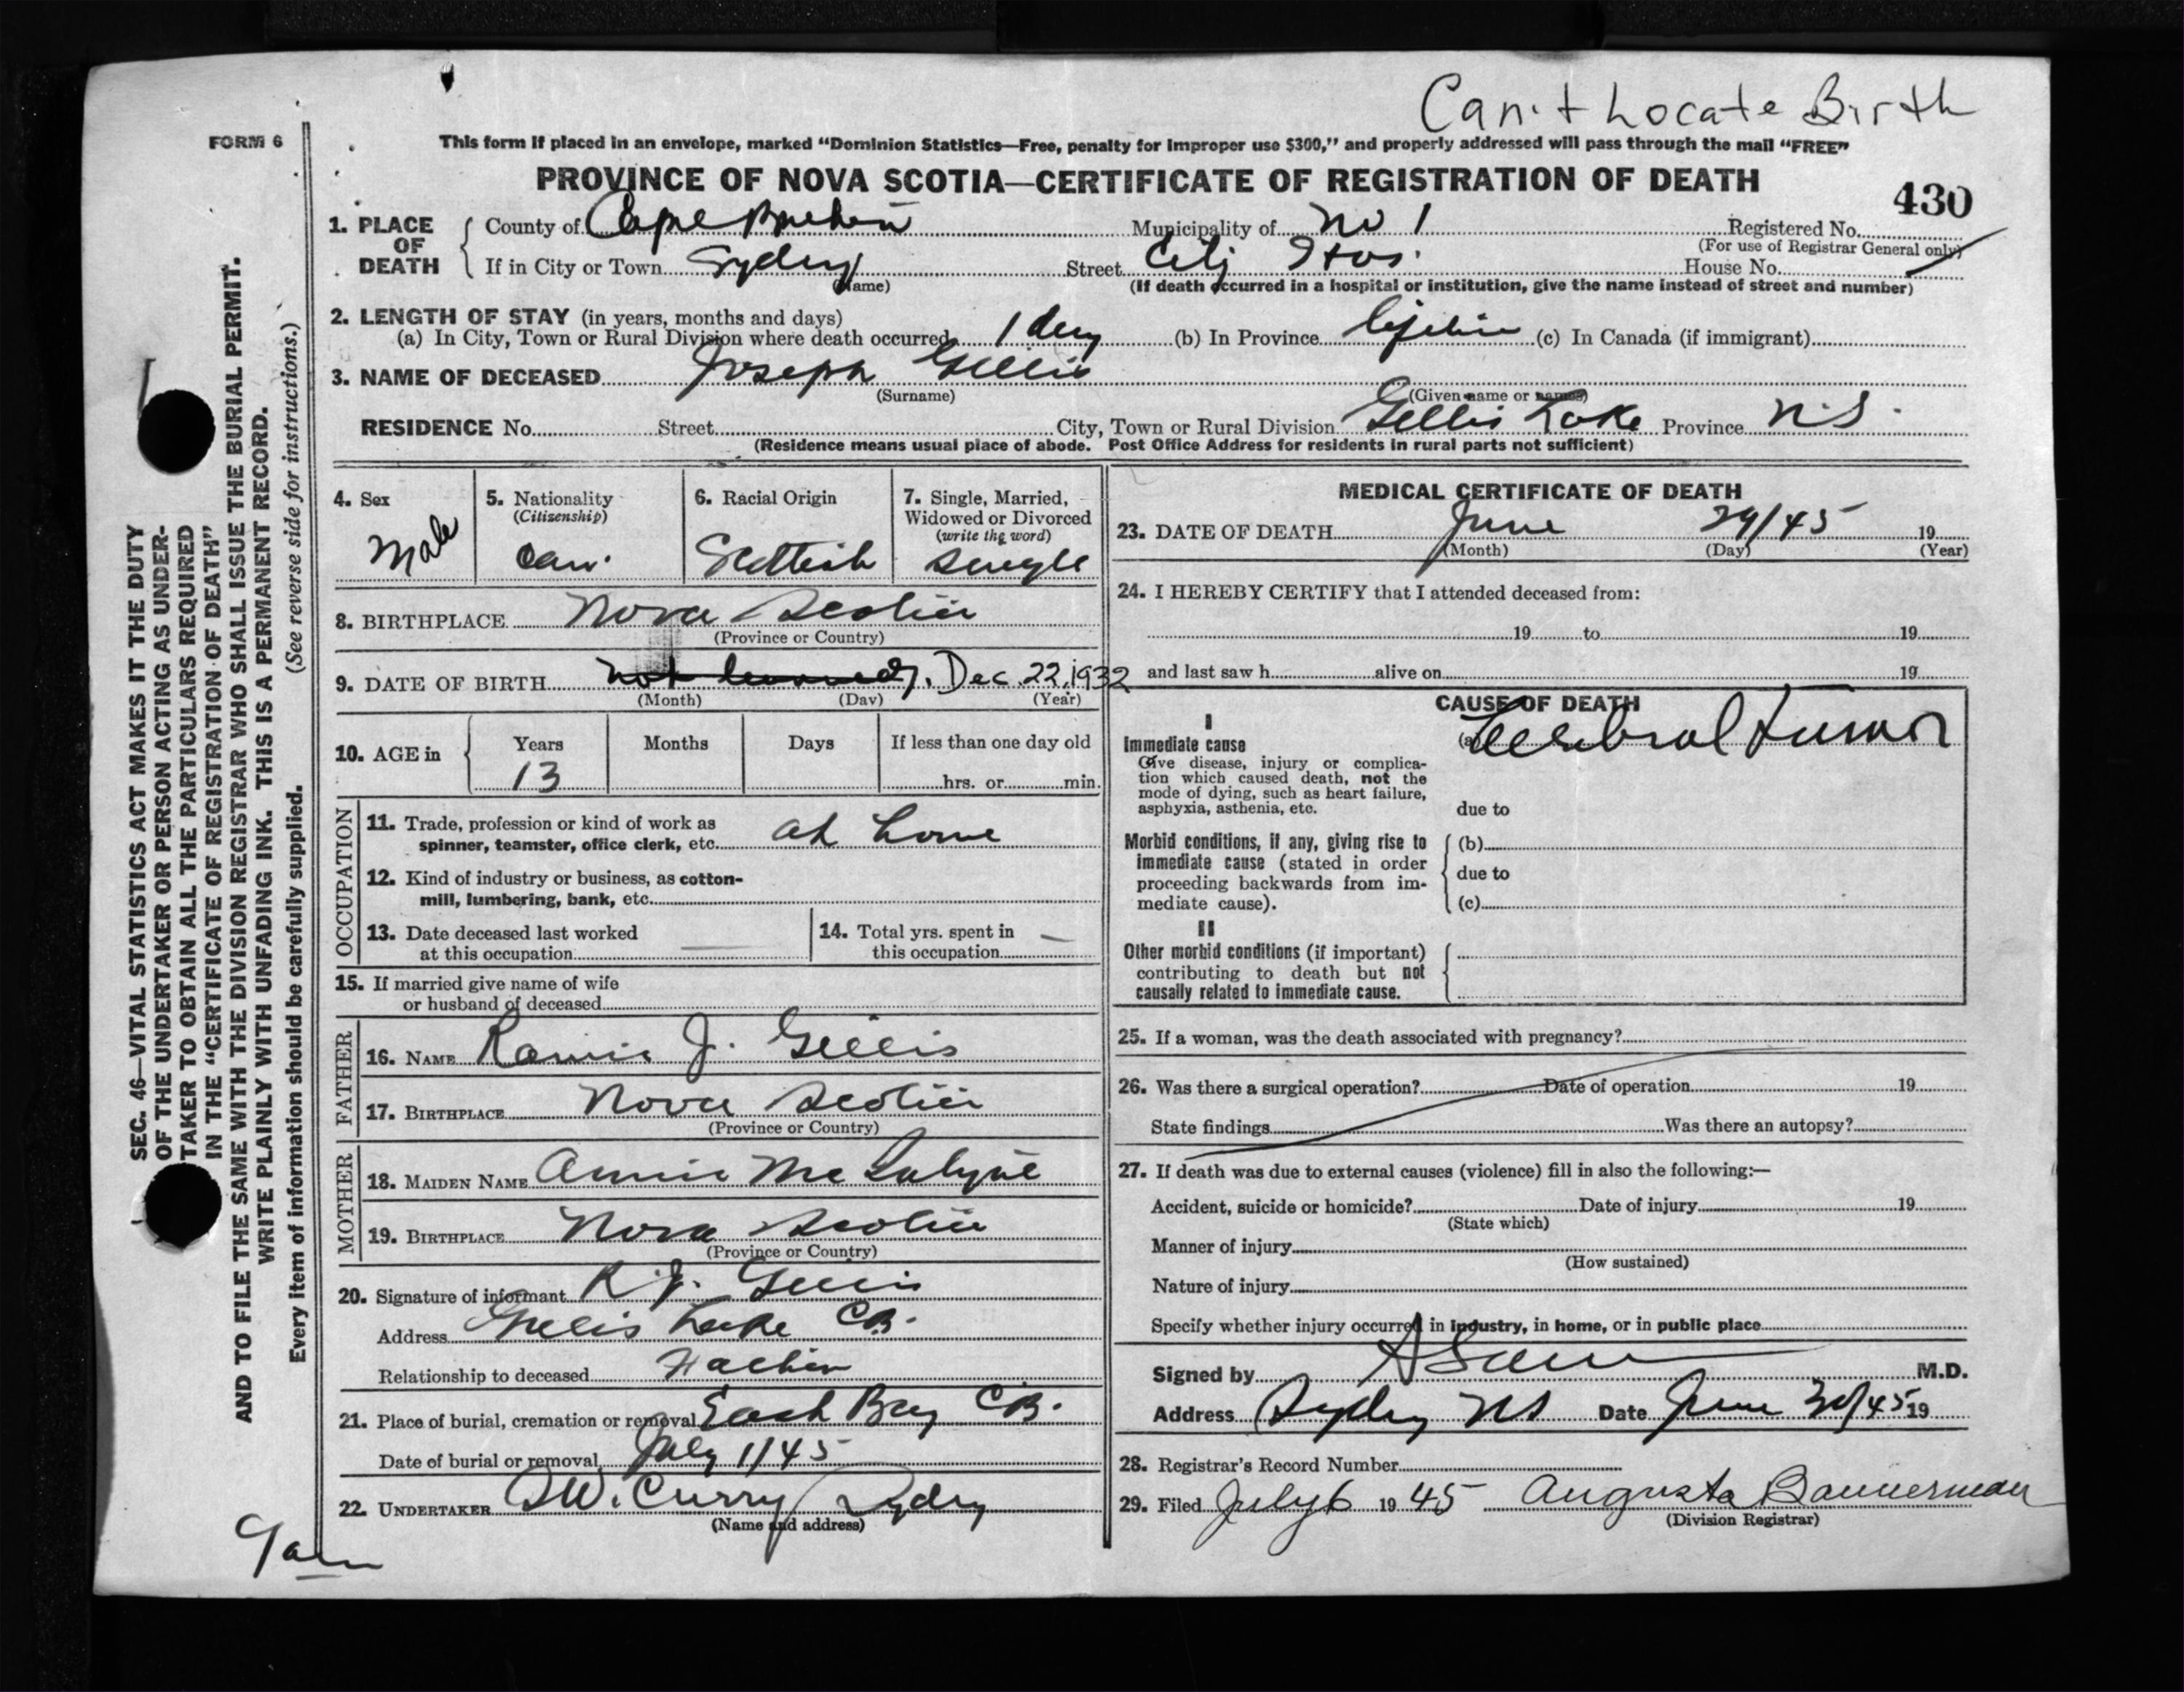 Can't Locate Birth
FORM 6
This form if placed in an envelope, marked "Dominion Statistics—Free, penalty for improper use $300," and properly addressed will pass through the mail "FREE"
PROVINCE OF NOVA SCOTIA—CERTIFICATE OF REGISTRATION OF DEATH
430
1. PLACE OF DEATH
County of Cape Breton Municipality of No 1 Registered No.
(For use of Registrar General only)
If in City or Town Sydney Street City Hos. House No.
(Name) (If death occurred in a hospital or institution, give the name instead of street and number)
2. LENGTH OF STAY (in years, months and days)
(a) In City, Town or Rural Division where death occurred 1 day (b) In Province lifetime (c) In Canada (if immigrant)
3. NAME OF DECEASED Joseph Gillis
(Surname) (Given name or names)
RESIDENCE No. Street City, Town or Rural Division Gillis Lake Province N.S.
(Residence means usual place of abode. Post Office Address for residents in rural parts not sufficient)
4. Sex
Male
5. Nationality
(Citizenship)
Can.
6. Racial Origin
Scottish
7. Single, Married,
Widowed or Divorced
(write the word)
Single
8. BIRTHPLACE Nova Scotia
(Province or Country)
9. DATE OF BIRTH Dec. 22, 1932
(Month) (Day) (Year)
10. AGE in
Years Months Days If less than one day old
13 hrs. or min.
OCCUPATION
11. Trade, profession or kind of work as
spinner, teamster, office clerk, etc. at home
12. Kind of industry or business, as cotton-
mill, lumbering, bank, etc.
13. Date deceased last worked
at this occupation
14. Total yrs. spent in
this occupation
15. If married give name of wife
or husband of deceased
FATHER
16. NAME J. Gillis
17. BIRTHPLACE Nova Scotia
(Province or Country)
MOTHER
18. MAIDEN NAME Annie Mc
19. BIRTHPLACE Nova Scotia
(Province or Country)
20. Signature of informant R. J. Gillis
Address Gillis Lake C.B.
Relationship to deceased Father
21. Place of burial, cremation or removal East Bay C.B.
Date of burial or removal July 1/45
22. UNDERTAKER W. Curry Sydney
(Name and address)
MEDICAL CERTIFICATE OF DEATH
23. DATE OF DEATH June 29/45 19
(Month) (Day) (Year)
24. I HEREBY CERTIFY that I attended deceased from:
19 to 19
and last saw h alive on 19
CAUSE OF DEATH
I
Immediate cause
Give disease, injury or complica-
tion which caused death, not the
mode of dying, such as heart failure,
asphyxia, asthenia, etc.
(a) Cerebral Tumor
due to
Morbid conditions, if any, giving rise to
immediate cause (stated in order
proceeding backwards from im-
mediate cause).
(b)
due to
(c)
II
Other morbid conditions (if important)
contributing to death but not
causally related to immediate cause.
25. If a woman, was the death associated with pregnancy?
26. Was there a surgical operation? Date of operation 19
State findings Was there an autopsy?
27. If death was due to external causes (violence) fill in also the following:—
Accident, suicide or homicide? Date of injury 19
(State which)
Manner of injury
(How sustained)
Nature of injury
Specify whether injury occurred in industry, in home, or in public place
Signed by M.D.
Address Sydney NS Date June 30/45 19
28. Registrar's Record Number
29. Filed July 6 19 45 Augusta Bannerman
(Division Registrar)
SEC. 46—VITAL STATISTICS ACT MAKES IT THE DUTY
OF THE UNDERTAKER OR PERSON ACTING AS UNDER-
TAKER TO OBTAIN ALL THE PARTICULARS REQUIRED
IN THE "CERTIFICATE OF REGISTRATION OF DEATH"
AND TO FILE THE SAME WITH THE DIVISION REGISTRAR WHO SHALL ISSUE THE BURIAL PERMIT.
WRITE PLAINLY WITH UNFADING INK. THIS IS A PERMANENT RECORD.
Every item of information should be carefully supplied. (See reverse side for instructions.)